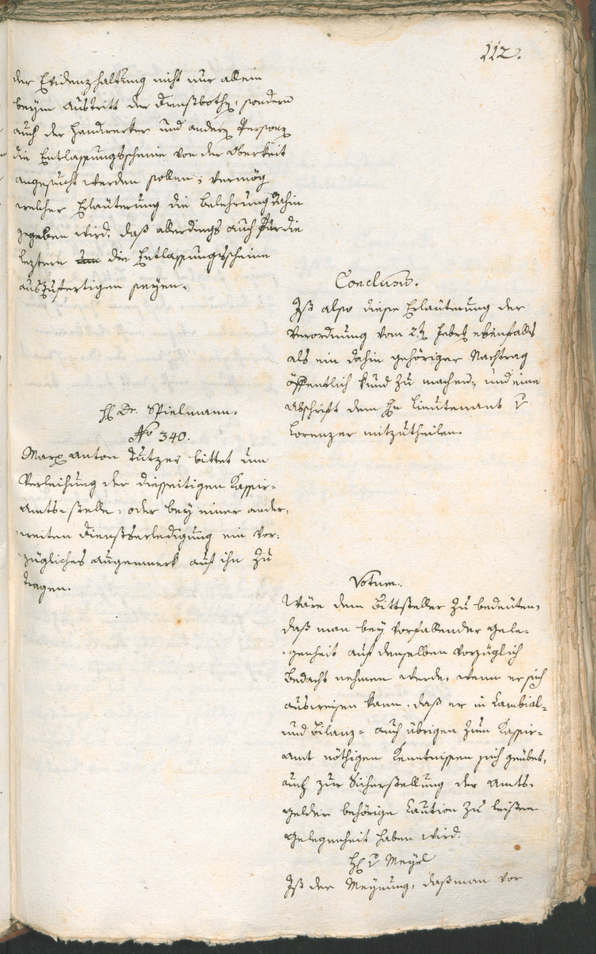 112.
der Evidenzhaltung nicht nur allein
beym Austritt der Dienstbothen, sondern
auch der Handwerker und anderen Personen
die Entlassungsscheine von der Oberkeit
angesucht werden sollen; vermög
welcher Erläuterung die Belehrung dahin
gegeben wird, daß allerdings auch für die
leztern die Entlassungsscheine
auszufertigen seyen.
Conclusum.
Ist also diese Erläuterung der
Verordnung vom ebenfalls
als ein dahin gehöriger Nachtrag
öffentlich kund zu machen, und eine
Abschrift dem Hn Lieutenant v
Lorenzer mitzutheilen.
H Dr. Spielmann.
No 340.
Marx Anton Tutzer bittet um
Verleihung der diesseitigen Kassir-
Amts-Stelle, oder bey einer ander-
weiten Dienstserledigung ein vor-
zügliches Augenmerk auf ihn zu
tragen.
Votum.
Wäre dem Bittsteller zu bedeuten,
daß man bey vorfallender Gele-
genheit auf denselben vorzüglich
Bedacht nehmen werde, wenn er sich
ausweisen kann, daß er in Cambial-
und Bilanz- auch übrigen zum Kassir-
Amt nöthigen Kenntnissen sich geübet,
auch zur Sicherstellung der Amts-
gelder behörige Caution zu leisten
Gelegenheit haben wird.
H v Meyrl
Ist der Meynung, daß man vor